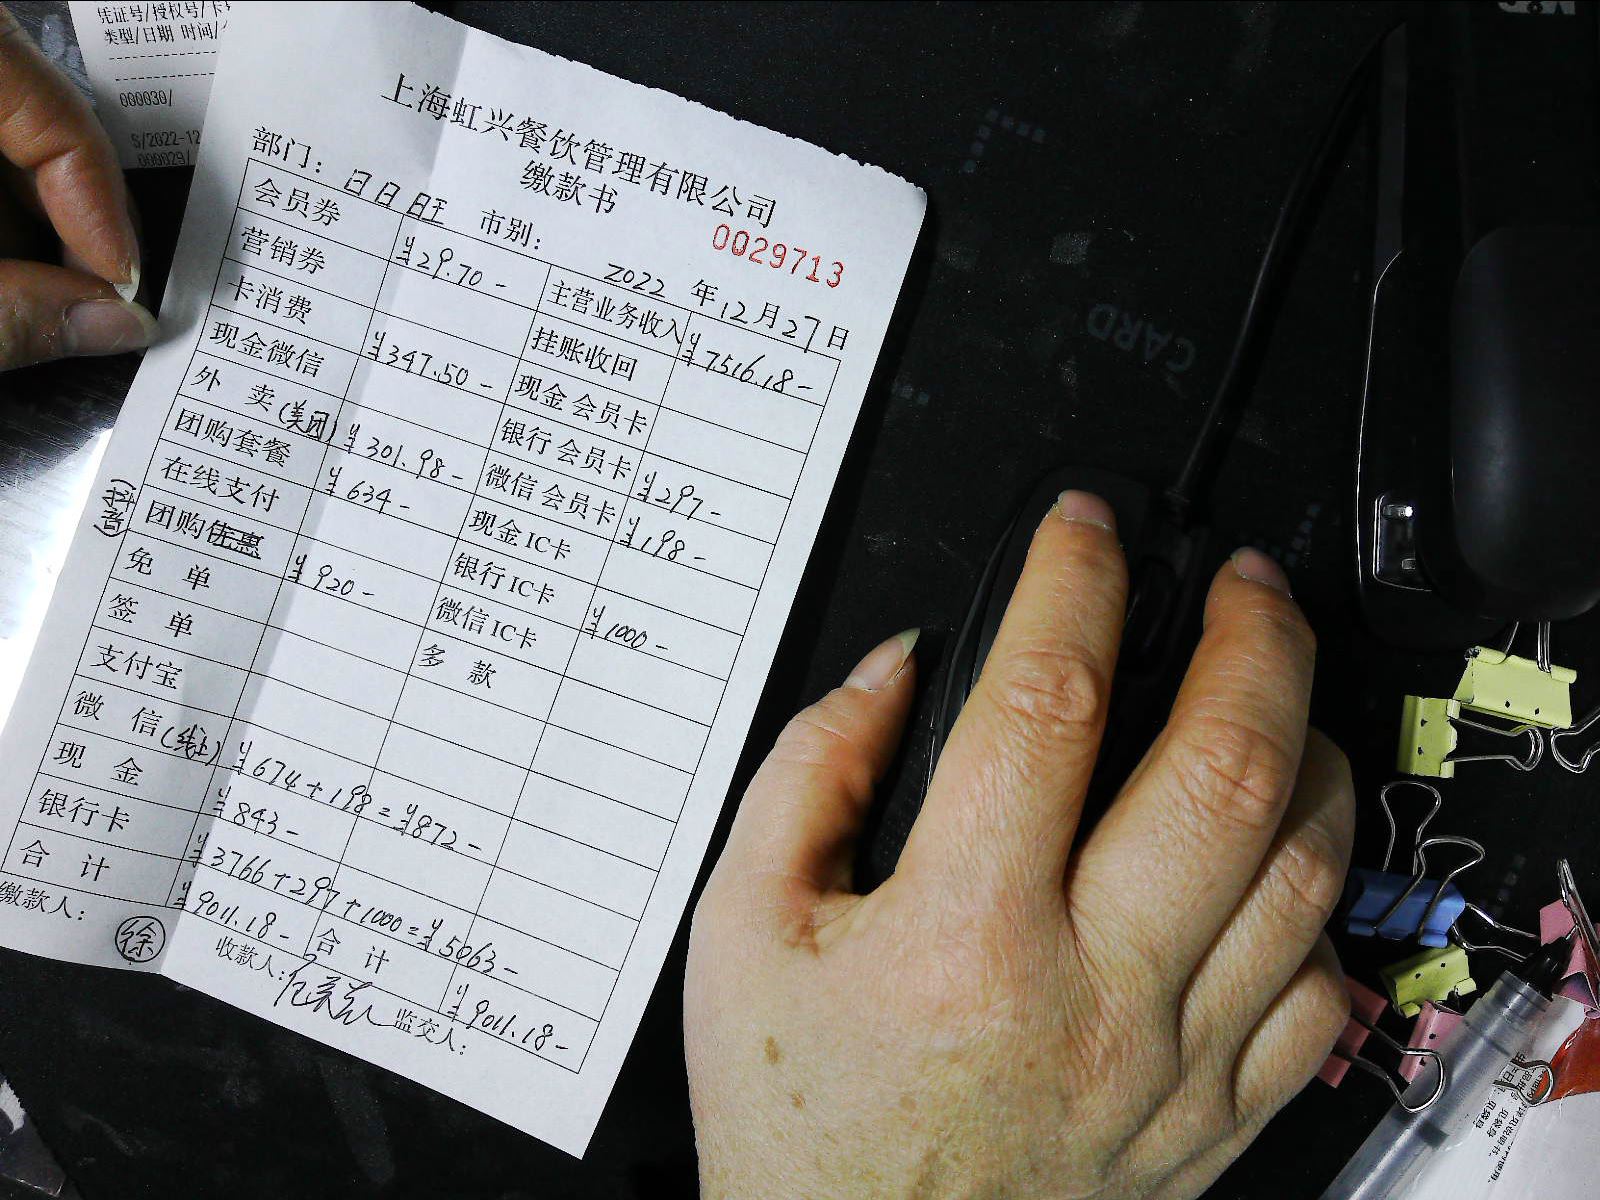 凭证号/授权号/卡
类型/日期 时间/
000030/
S/2022-12
000029/
上海虹兴餐饮管理有限公司
缴款书
0029713
部门: 日日旺 市别: 2022 年 12 月 27 日
会员券 ¥29.70- 主营业务收入 ¥7516.18-
营销券 挂账收回
卡消费 ¥347.50- 现金会员卡
现金微信 银行会员卡 ¥297-
外 卖(美团) ¥301.98- 微信会员卡 ¥198-
团购套餐 ¥634- 现金IC卡
在线支付 银行IC卡 ¥1000-
(抖音) 团购优惠 ¥920- 微信IC卡
免 单 多 款
签 单
支付宝
微 信(线上) ¥674+198=¥872-
现 金 ¥843-
银行卡 ¥3766+297+1000=¥5063-
合 计 ¥9011.18- 合 计 ¥9011.18-
缴款人: 徐 收款人: 监交人:
CARD